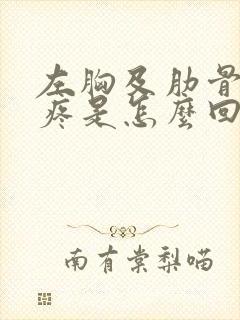 左胸及肋骨
疼是怎麼回
南有棠梨喵